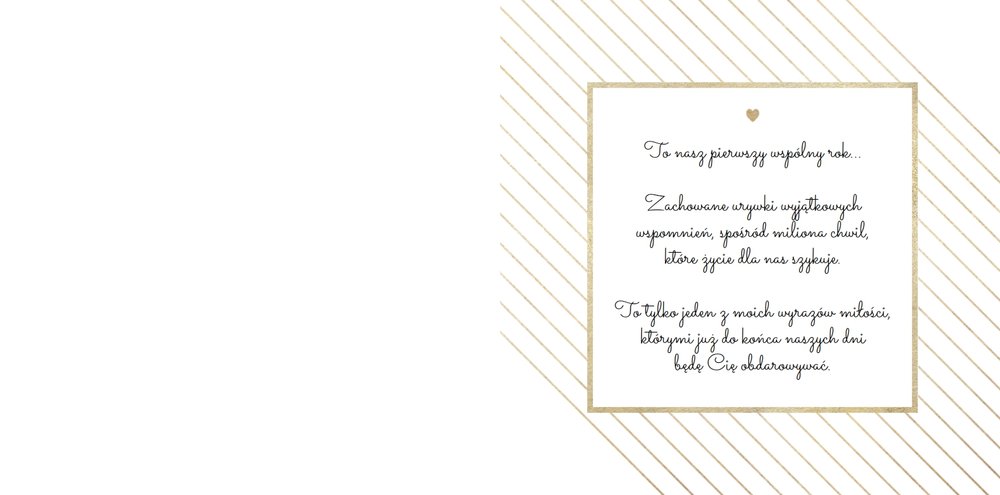 To nasz pierwszy wspólny rok...
Zachowane urywki wyjątkowych
wspomnień, spośród miliona chwil,
które życie dla nas szykuje.
To tylko jeden z moich wyrazów miłości,
którymi już do końca naszych dni
będę Cię obdarowywać.